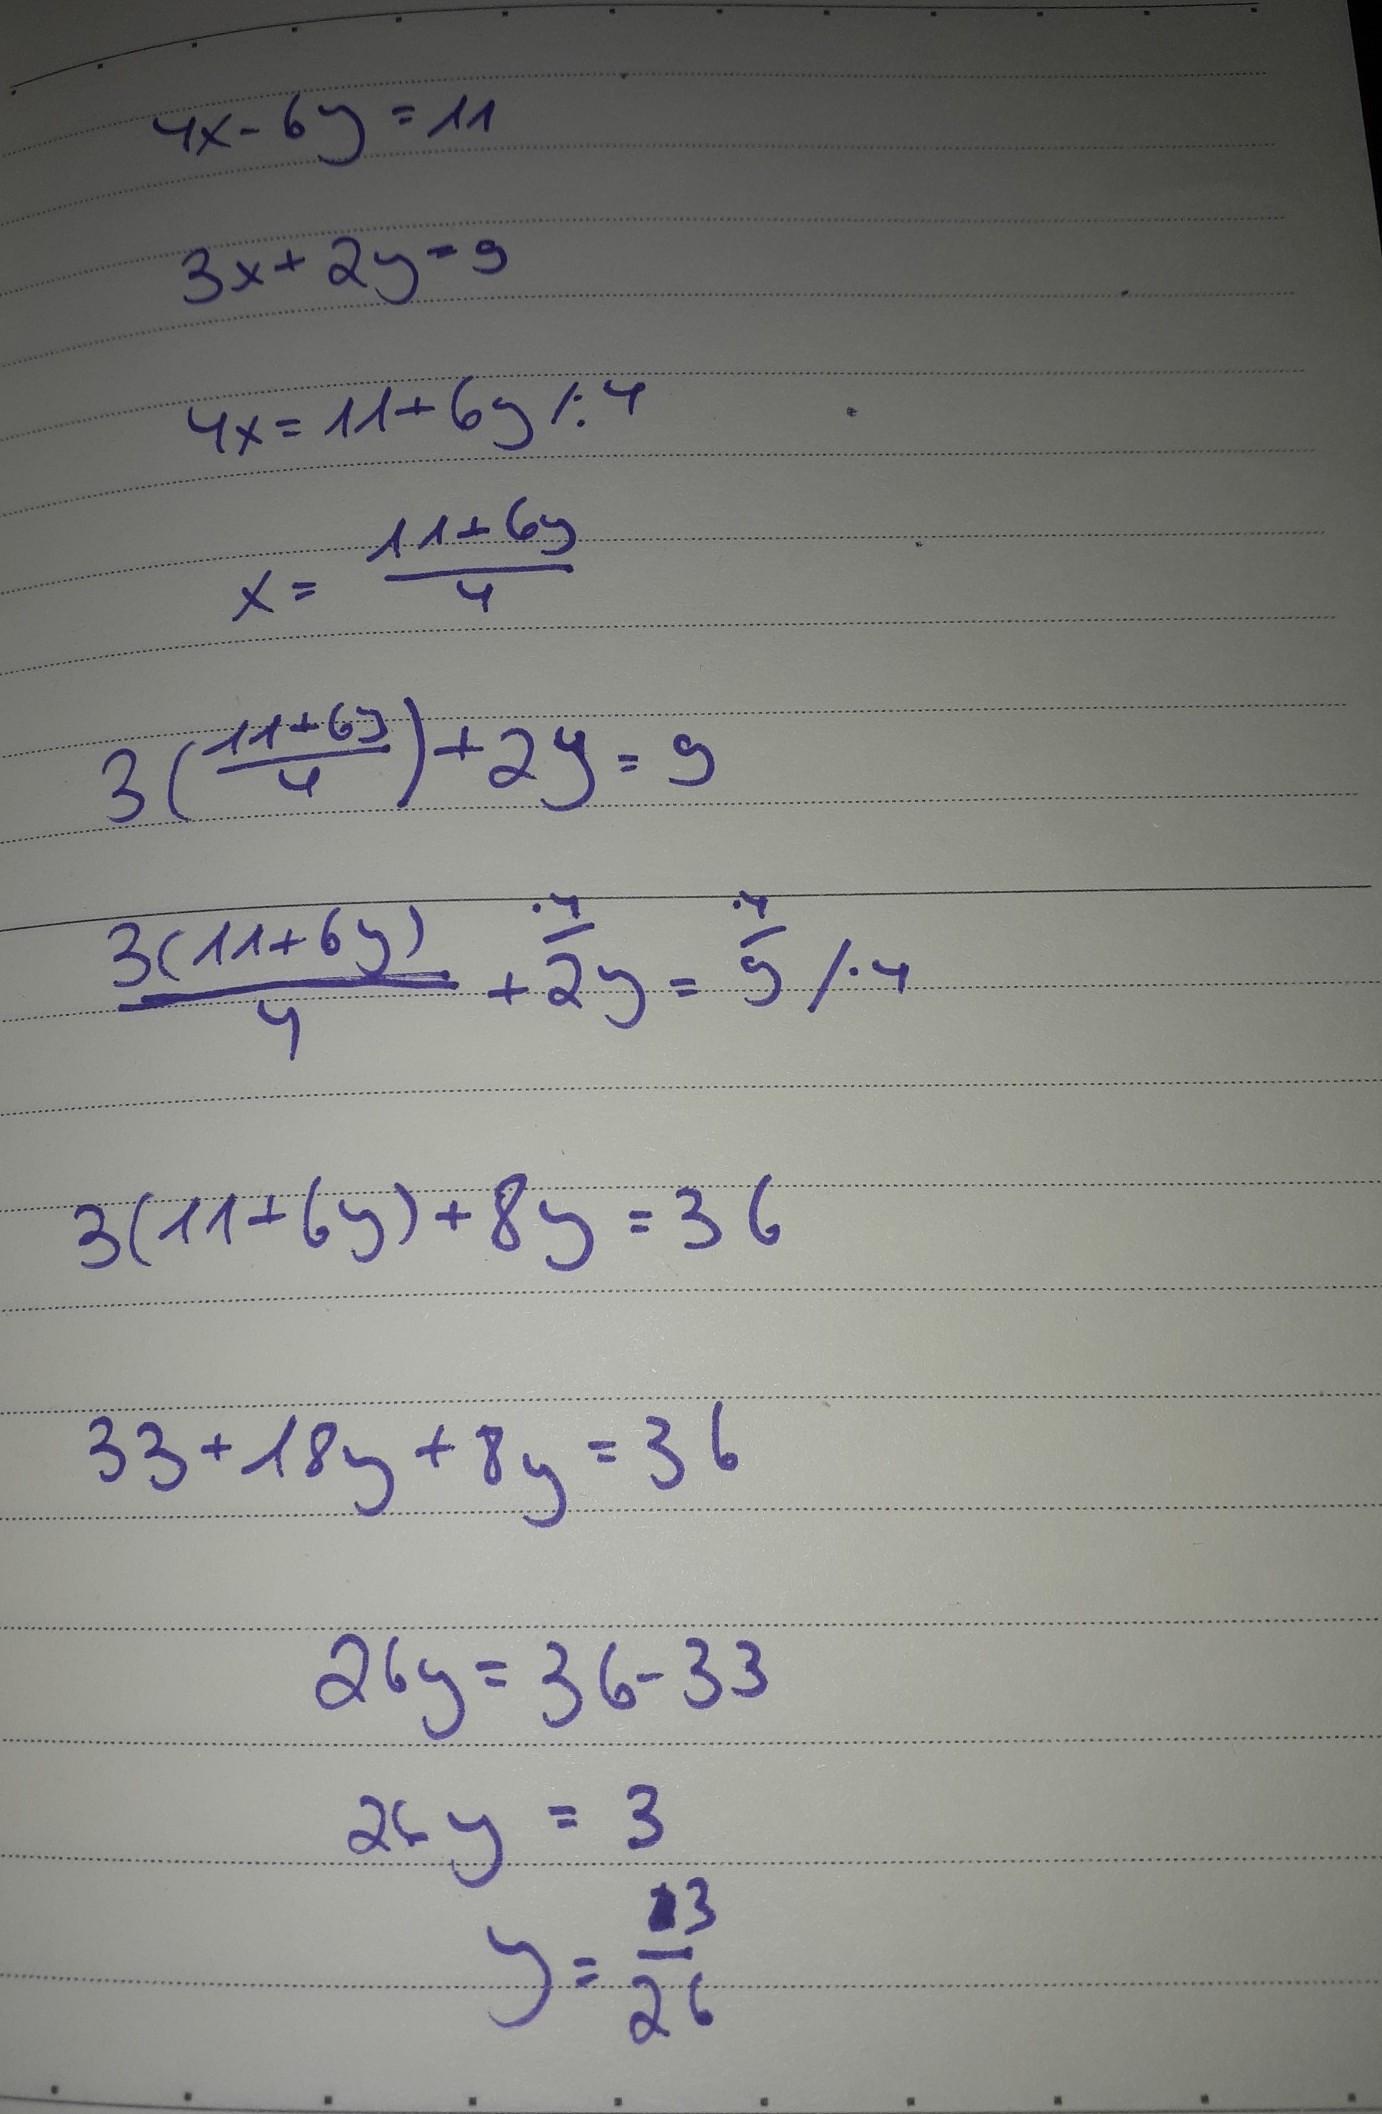 4x-6y=11
3x+2y=9
4x=11+6y/:4
x=\frac{11+6y}{4}
3(\frac{11+6y}{4})+2y=9
\frac{3(11+6y)}{4}+\overset{\cdot 4}{\overline{2y}}=\overset{\cdot 4}{\overline{9}}/\cdot 4
3(11+6y)+8y=36
33+18y+8y=36
26y=36-33
26y=3
y=\frac{3}{26}